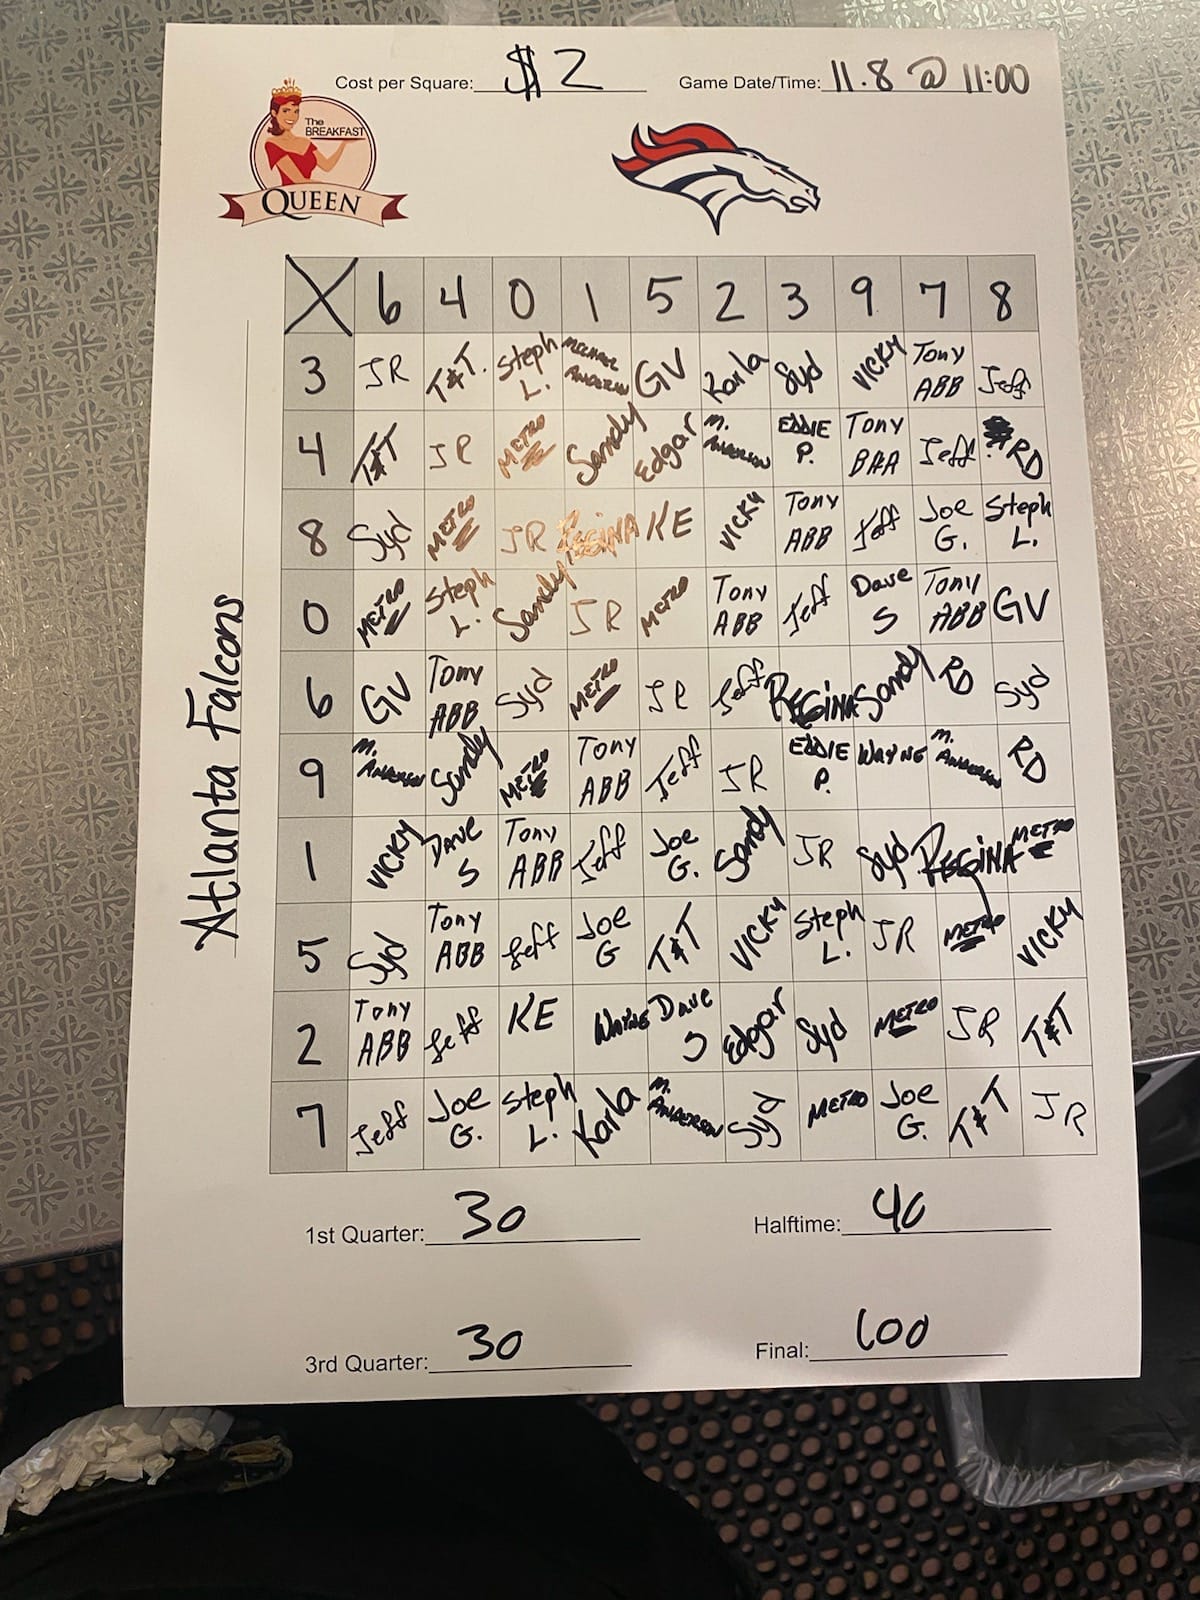 Cost per Square: $2 Game Date/Time: 11.8 @ 11:00
The
BREAKFAST
QUEEN
Atlanta Falcons
X 6 4 0 1 5 2 3 9 7 8
3 JR T&T. Steph L. MICHAEL ANDERSON GV Karla Syd VICKY Tony ABB Jeff
4 T&T JR METRO Sandy Edgar M. ANDERSON EDDIE P. Tony BAA Jeff RD
8 Syd METRO JR REGINA KE VICKY Tony ABB Jeff Joe G. Steph L.
0 METRO Steph L. Sandy JR METRO Tony ABB Jeff Dave S Tony ABB GV
6 GV Tony ABB Syd METRO JR Jeff REGINA Sandy RD Syd
9 M. ANDERSON Sandy METRO Tony ABB Jeff JR EDDIE P. WAYNE M. ANDERSON RD
1 VICKY DAVE S Tony ABB Jeff Joe G. Sandy JR Syd REGINA METRO
5 Syd Tony ABB Jeff Joe G T&T VICKY Steph L. JR METRO VICKY
2 Tony ABB Jeff KE WAYNE Dave S Edgar Syd METRO JR T&T
7 Jeff Joe G. Steph L. Karla M. ANDERSON Syd METRO Joe G. T&T JR
1st Quarter: 30 Halftime: 40
3rd Quarter: 30 Final: 100